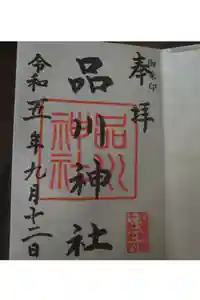 奉拝
品川神社
令和五年九月十二日
品川
神社